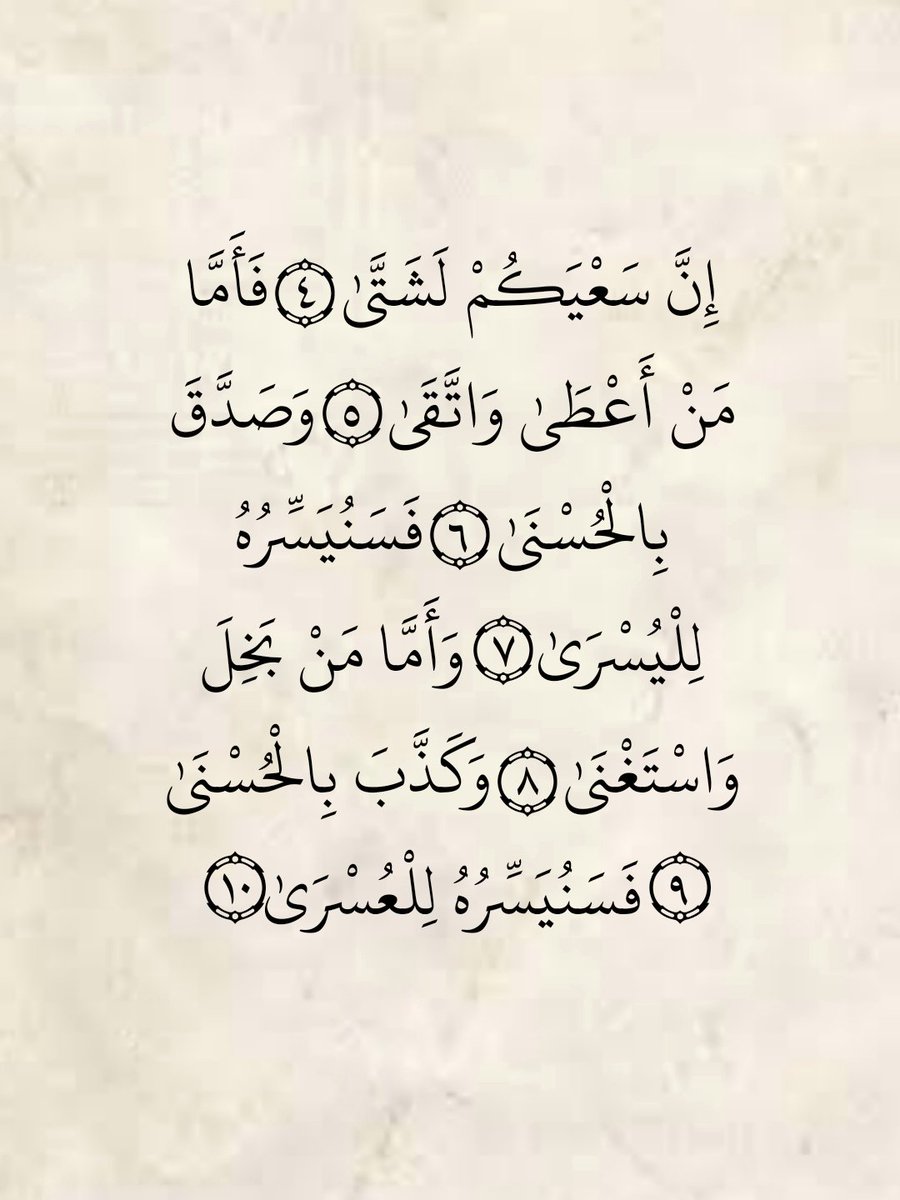 إِنَّ سَعْيَكُمْ لَشَتَّىٰ ٤ فَأَمَّا
مَنْ أَعْطَىٰ وَاتَّقَىٰ ٥ وَصَدَّقَ
بِالْحُسْنَىٰ ٦ فَسَنُيَسِّرُهُ
لِلْيُسْرَىٰ ٧ وَأَمَّا مَنْ بَخِلَ
وَاسْتَغْنَىٰ ٨ وَكَذَّبَ بِالْحُسْنَىٰ
٩ فَسَنُيَسِّرُهُ لِلْعُسْرَىٰ ١٠